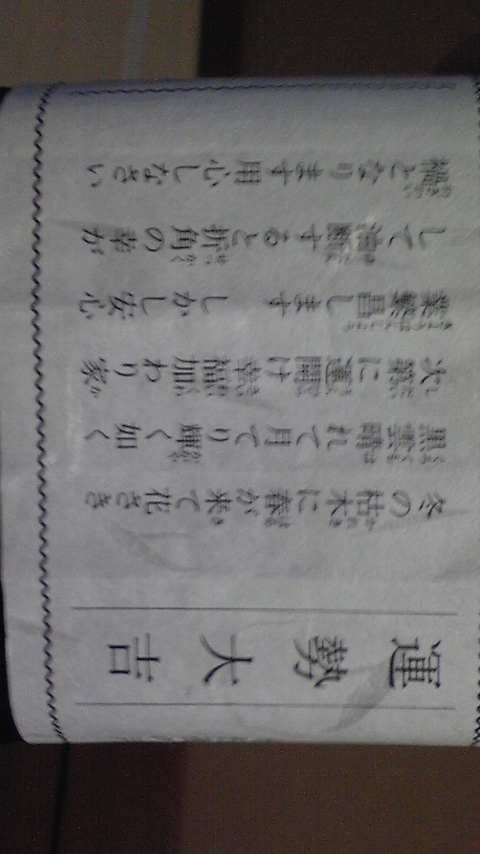 運勢大吉
冬の枯木に春が来て花さき
黒雲晴れて月てり輝く如く
次第に運開け幸福加わり家
業繁昌します しかし安心
して油断すると折角の幸が
禍となります用心しなさい